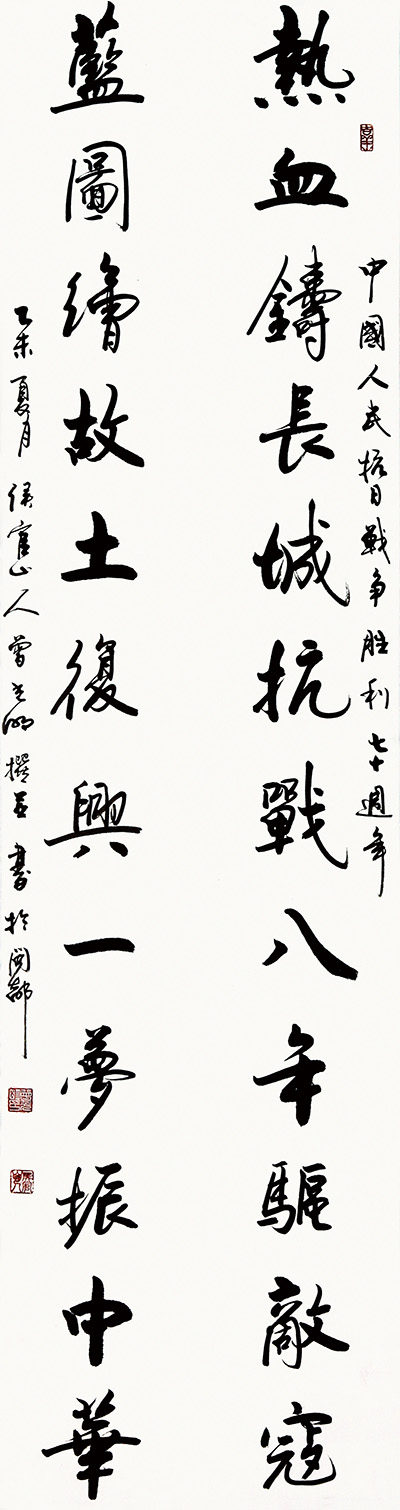 中國人民抗日戰争勝利七十週年
熱血鑄長城抗戰八年驅敵寇
藍圖繪故土復興一夢振中華
乙未夏月侯官山人曾光明撰並書於閩都